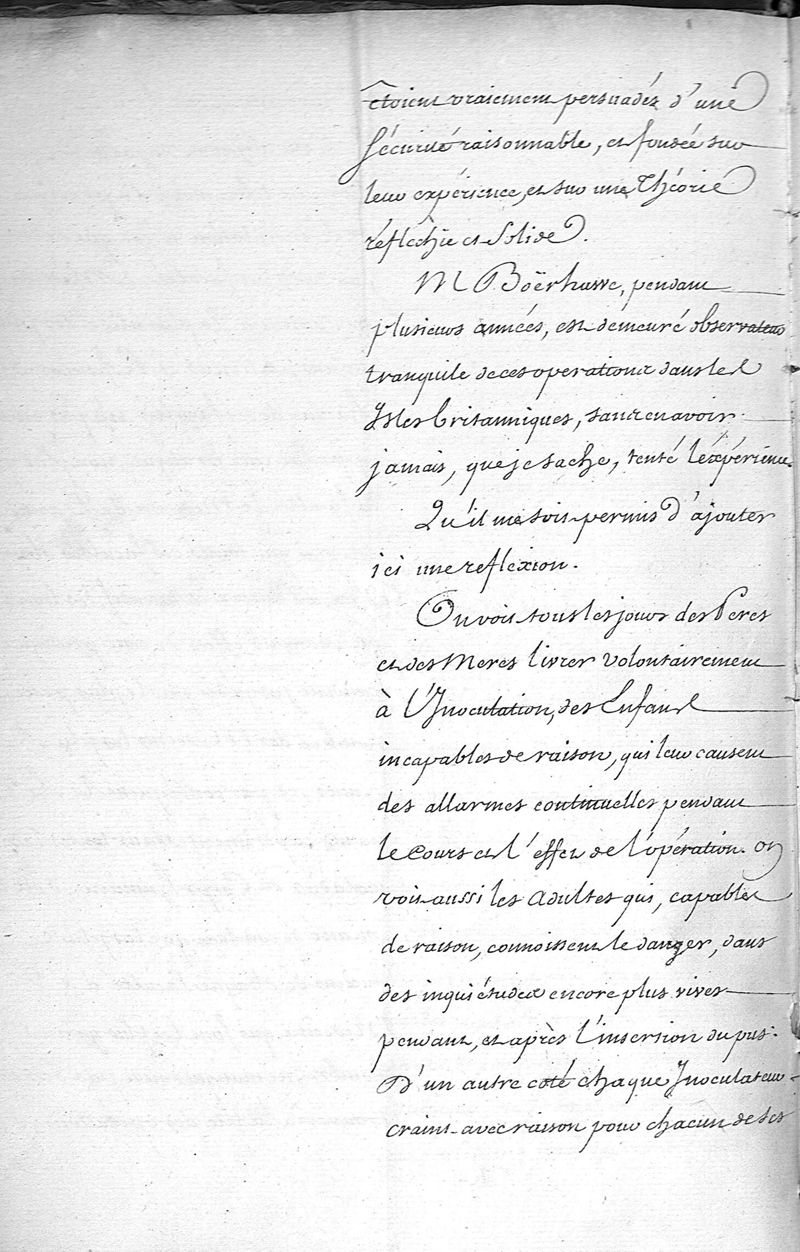 êtoient vraiement persuadés d'une
sécurité raisonnable, et fondée sur
leur expérience, et sur une Théorie
réflêchie et solide.
M Boërhave, pendant
plusieurs années, est démeuré observateur
tranquile de ces operations dans les
Isles britanniques, sans en avoir
jamais, que je sache, tenté l'éxpérience.
Qu'il me soit permis d'ajouter
ici une reflexion.
On voit tous les jours des Peres
et des Meres livrer volontairement
à l'Inoculation, des Enfans
incapables de raison, qui leur causent
des allarmes continuelles pendant
le cours et l'effet de l'opération. on
voit aussi les adultes qui, capables
de raison, connoissent le danger, dans
des inquiétudes encore plus vives
pendant, et après l'insertion du pus.
D'un autre coté chaque Inoculateur
craint avec raison pour chacun de ses